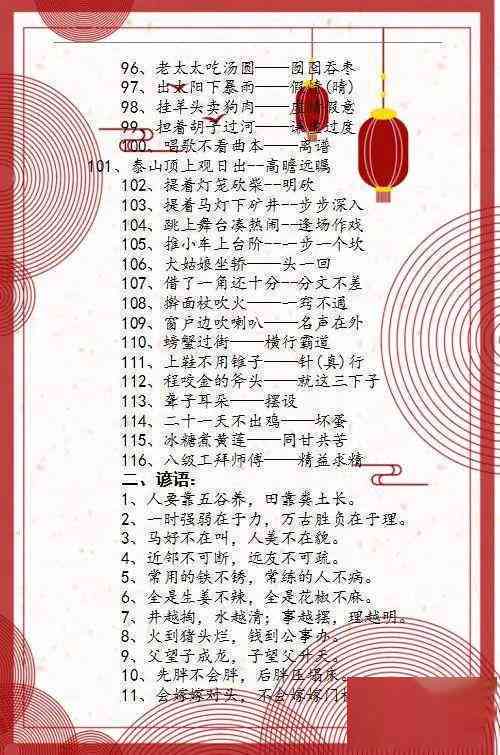 96、老太太吃汤圆——囫囵吞枣
97、出太阳下暴雨——假晴(晴)
98、挂羊头卖狗肉——虚情假意
99、担着胡子过河——谦虚过度
100、唱歌不看曲本——离谱
101、泰山顶上观日出--高瞻远瞩
102、提着灯笼砍柴--明砍
103、提着马灯下矿井--步步深入
104、跳上舞台凑热闹--逢场作戏
105、推小车上台阶--一步一个坎
106、大姑娘坐轿——头一回
107、借了一角还十分--分文不差
108、擀面杖吹火——一窍不通
109、窗户边吹喇叭——名声在外
110、螃蟹过街——横行霸道
111、上鞋不用锥子——针(真)行
112、程咬金的斧头——就这三下子
113、聋子耳朵——摆设
114、二十一天不出鸡——坏蛋
115、冰糖煮黄莲——同甘共苦
116、八级工拜师傅——精益求精
二、谚语:
1、人要靠五谷养，田靠粪土长。
2、一时强弱在于力，万古胜负在于理。
3、马好不在叫，人美不在貌。
4、近邻不可断，远友不可疏。
5、常用的铁不锈，常练的人不病。
6、全是生姜不辣，全是花椒不麻。
7、井越掏，水越清；事越摆，理越明。
8、火到猪头烂，钱到公事办。
9、父望子成龙，子望父升天。
10、先胖不会胖，后胖压塌床。
11、会嫁嫁对头，不会嫁嫁门